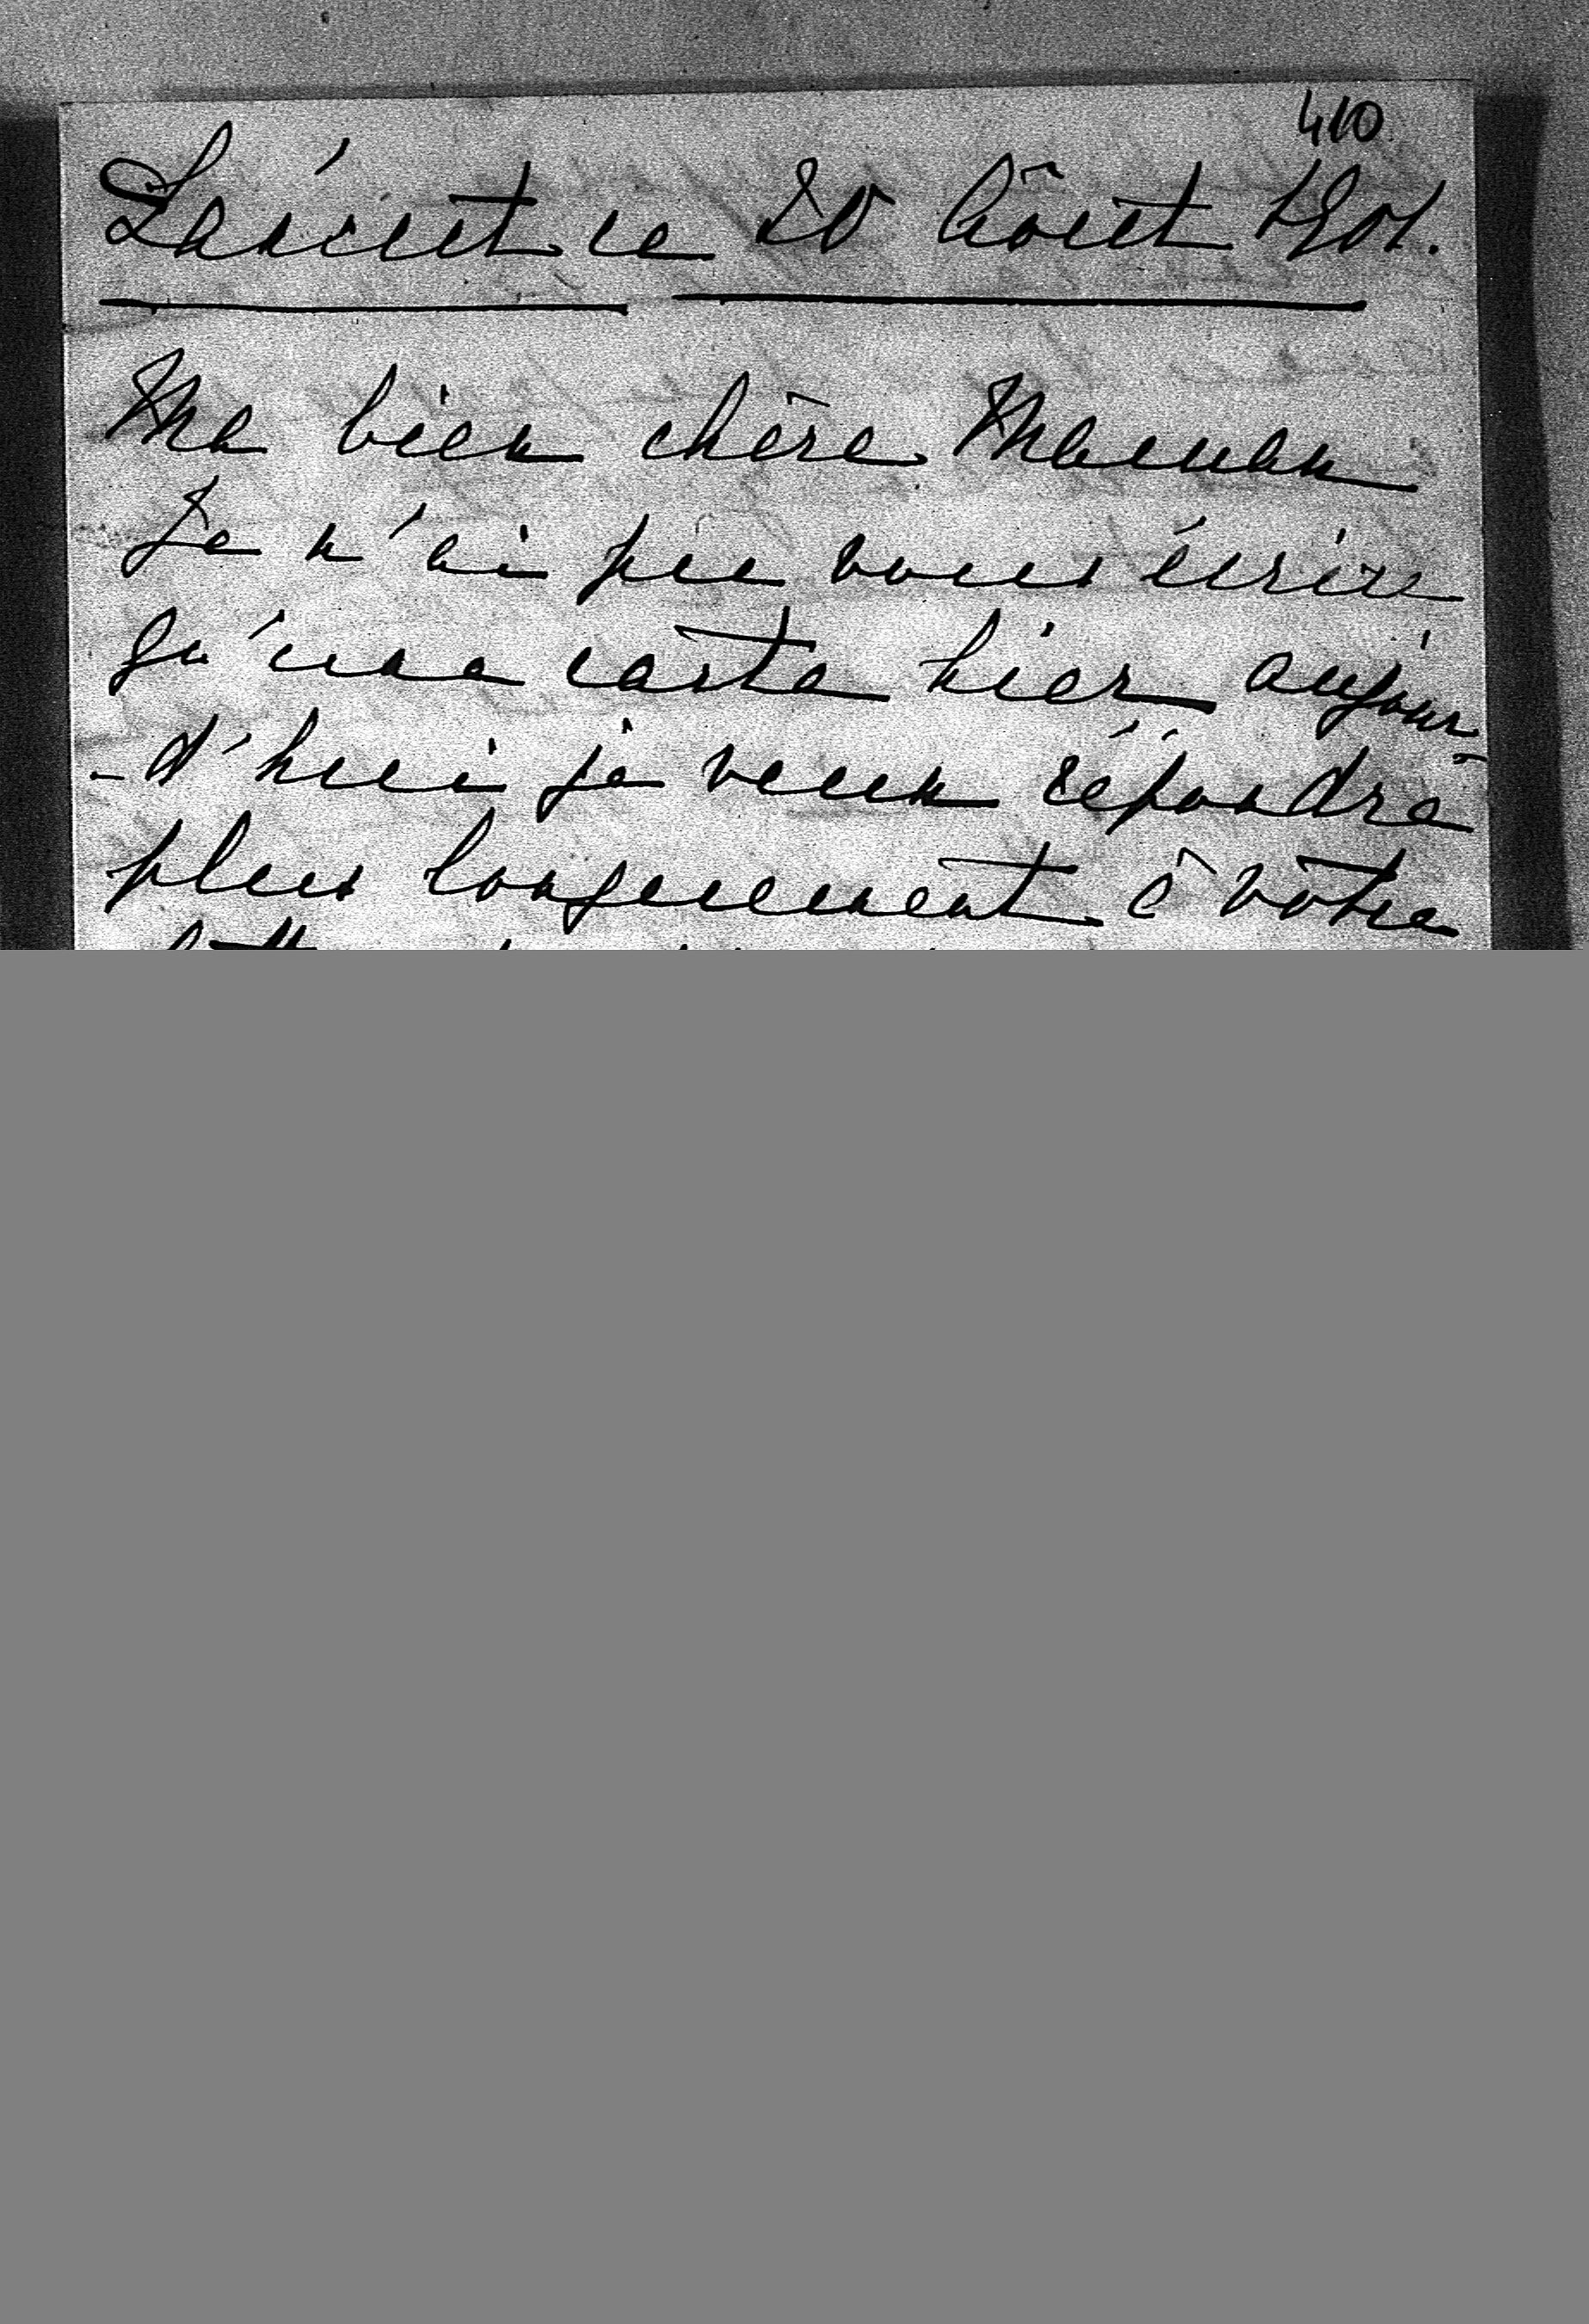 410
ce 20 Août 1901.
Ma bien chère Maman
Je n'ai pu vous écrire
qu'une carte hier aujour
-d'hui je veux répondre
plus longuement à vôtre